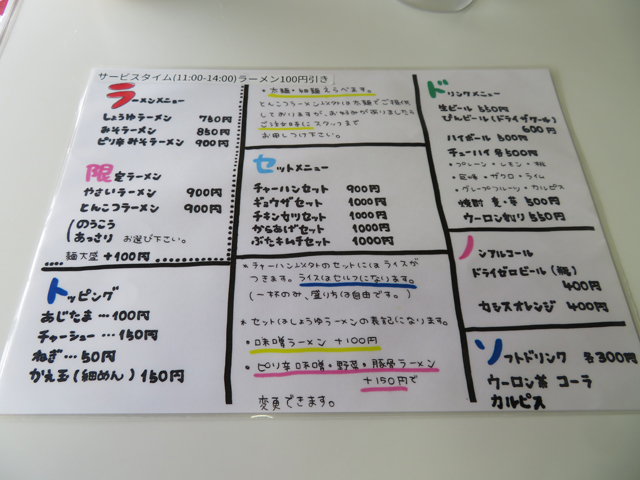 サービスタイム(11:00-14:00)ラーメン100円引き
ラーメンメニュー
しょうゆラーメン 750円
みそラーメン 850円
ピリ辛みそラーメン 900円
限定ラーメン
やさいラーメン 900円
とんこつラーメン 900円
(のうこう
あっさり お選び下さい。
麺大盛 +100円
トッピング
あじたま…100円
チャーシュー…150円
ねぎ…50円
かえ玉(細めん)150円
*太麺・細麺えらべます。
とんこつラーメン以外は太麺でご提供
しておりますが、お好みがありましたら
ご注文時にスタッフまで
お申しつけ下さい。
セットメニュー
チャーハンセット 900円
ギョウザセット 1000円
チキンセツセット 1000円
からあげセット 1000円
ぶたキムチセット 1000円
*チャーハン以外のセットにはライスが
つきます。ライスはセルフになります。
(一杯のみ、盛り方は自由です。)
*セットはしょうゆラーメンの表記になります。
・味噌ラーメン +100円
・ピリ辛味噌・野菜・豚骨ラーメン
+150円で
変更できます。
ドリンクメニュー
生ビール 550円
びんビール(ドライ
600円
ハイボール 500円
チューハイ 各500円
・プレーン・レモン・桃
・巨峰・ザクロ・ライム
・グレープフルーツ・カルピス
焼酎 麦・芋 500円
ウーロン割り 550円
ノンアルコール
ドライゼロビール(瓶)
400円
カシスオレンジ 400円
ソフトドリンク 各300円
ウーロン茶 コーラ
カルピス